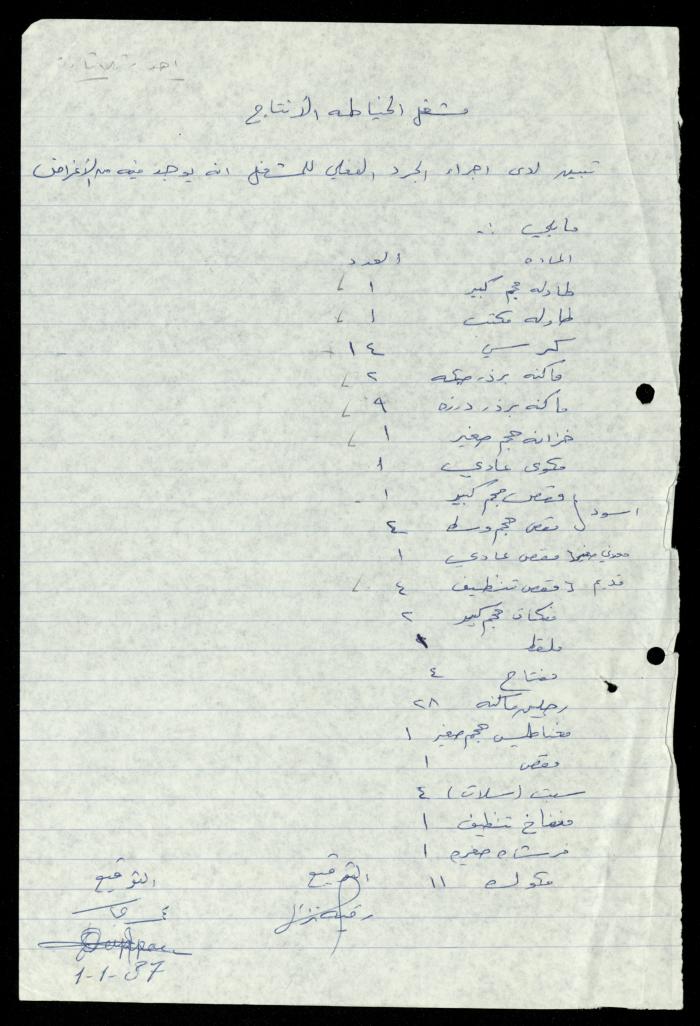 مشغل الخياطه الأنتاج
تبين لدى اجراء الجرد الفعلي للمشغل انه يوجد فيه من الأغراض
مايلي :-
الماده العدد
طاوله حجم كبير ١
طاوله مكتب ١
كرسي ١٤
ماكنه برذر حبكه ٢
ماكنه برذر درزه ٩
خزانه حجم صغير ١
مكوى عادي ١
اسود { مقص حجم كبير ١
مقص حجم وسط ٤
مقص عادي ١
قديم { مقص تنظيف ٤
مفكات حجم كبير ٢
ملقط
مفتاح ٤
رجلين ماكنه ٢٨
مغناطيس حجم صغير ١
مقص ١
سبت (سلات) ٤
منفاخ تنظيف ١
فرشاه صغيره ١
مكوك ١١
التوقيع التوقيع
1-1-87